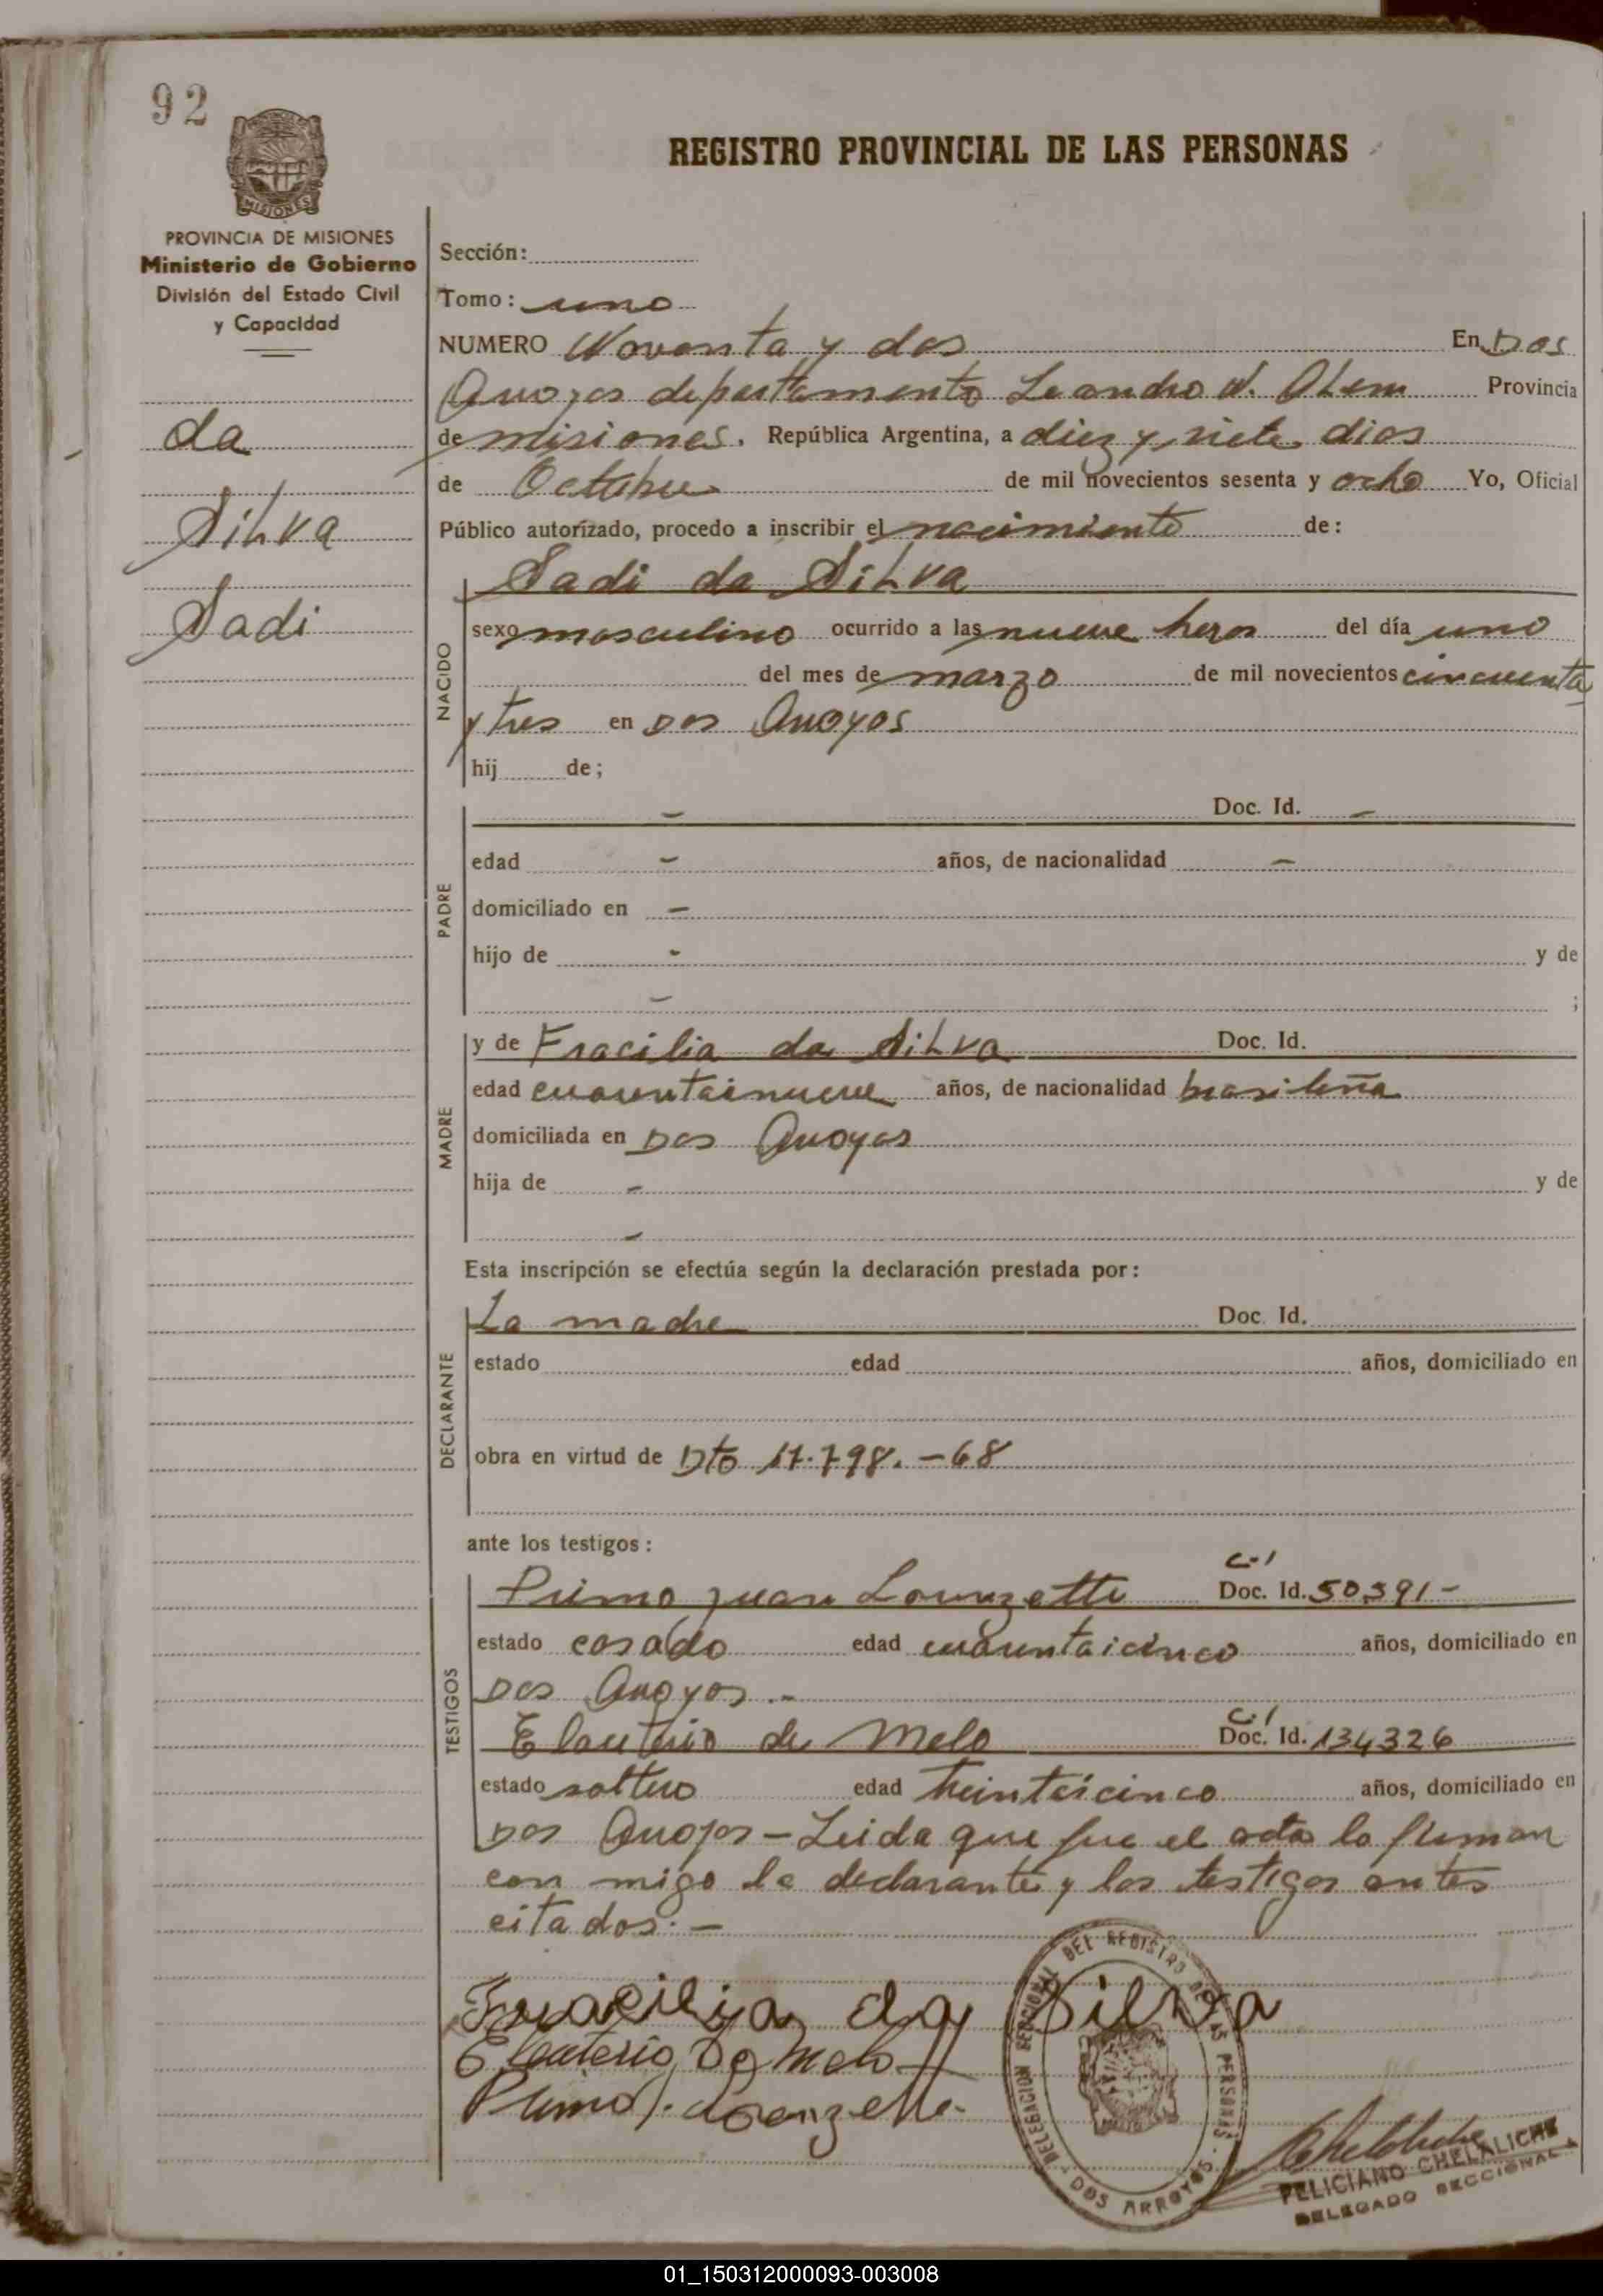 92
MISIONES
REGISTRO PROVINCIAL DE LAS PERSONAS
PROVINCIA DE MISIONES
Ministerio de Gobierno
División del Estado Civil
y Capacidad
da
Silva
Sadi
Sección:
Tomo: uno
NUMERO Noventa y dos En Dos
Arroyos departamento Leandro N. Alem Provincia
de misiones. República Argentina, a diez y siete dias
de Octubre de mil novecientos sesenta y ocho Yo, Oficial
Público autorizado, procedo a inscribir el nacimiento de:
NACIDO
Sadi da Silva
sexo masculino ocurrido a las nueve horas del día uno
del mes de marzo de mil novecientos cincuenta
y tres en Dos Arroyos
hij de;
PADRE
- Doc. Id. -
edad - años, de nacionalidad -
domiciliado en -
hijo de - y de
- ;
MADRE
y de Fracilia da Silva Doc. Id.
edad cuarentainueve años, de nacionalidad brasileña
domiciliada en Dos Arroyos
hija de - y de
-
Esta inscripción se efectúa según la declaración prestada por:
DECLARANTE
La madre Doc. Id.
estado edad años, domiciliado en
obra en virtud de Dto 17.798.-68
ante los testigos:
TESTIGOS
C.I
Primo Juan Lorenzetti Doc. Id. 50391-
estado casado edad cuarentaicinco años, domiciliado en
Dos Arroyos.-
C.I
Eleuterio de Melo Doc. Id. 134326
estado soltero edad treintaicinco años, domiciliado en
Dos Arroyos - Leida que fue el acta la firman
con migo la declarante y los testigos antes
citados.-
Fracilia da Silva
Eleuterio De Melo
Primo J. Lorenzetti
DELEGACION SECCIONAL DEL REGISTRO DE LAS PERSONAS
DOS ARROYOS
FELICIANO CHELALICHE
DELEGADO SECCIONAL
01_150312000093-003008